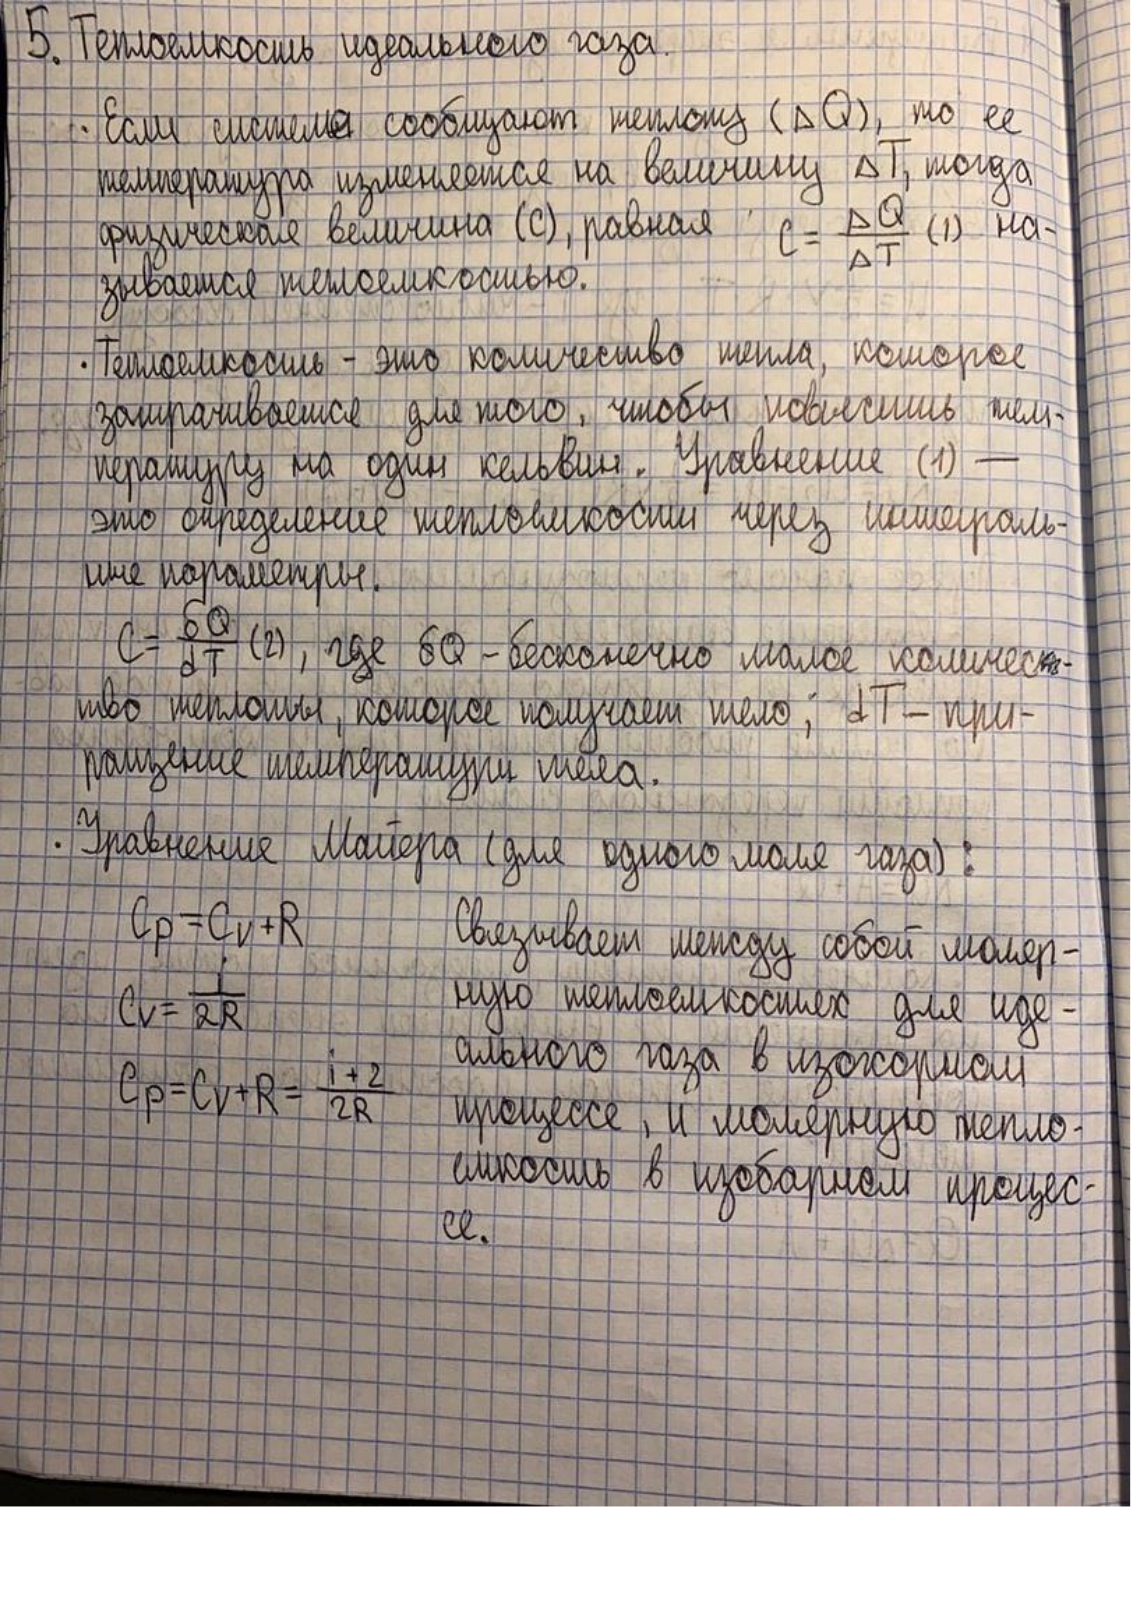 5. Теплоемкость идеального газа.
· Если система сообщают теплоту (ΔQ), то ее
температура изменяется на величину ΔT, тогда
физическая величина (C), равная C = ΔQ/ΔT (1) на-
зывается теплоемкостью.
· Теплоемкость - это количество тепла, которое
затрачивается для того, чтобы повысить тем-
пературу на один кельвин. Уравнение (1) —
это определение теплоемкости через интеграль-
ные параметры.
C = δQ/dT (2), где δQ - бесконечно малое количес-
тво теплоты, которое получает тело; dT - при-
ращение температуры тела.
· Уравнение Майера (для одного моля газа):
Cp = Cv + R
Cv = i/2R
Cp = Cv + R = i + 2/2R
Связывает между собой моляр-
ную теплоемкостях для иде-
ального газа в изохорном
процессе, и молярную тепло-
емкость в изобарном процес-
се.